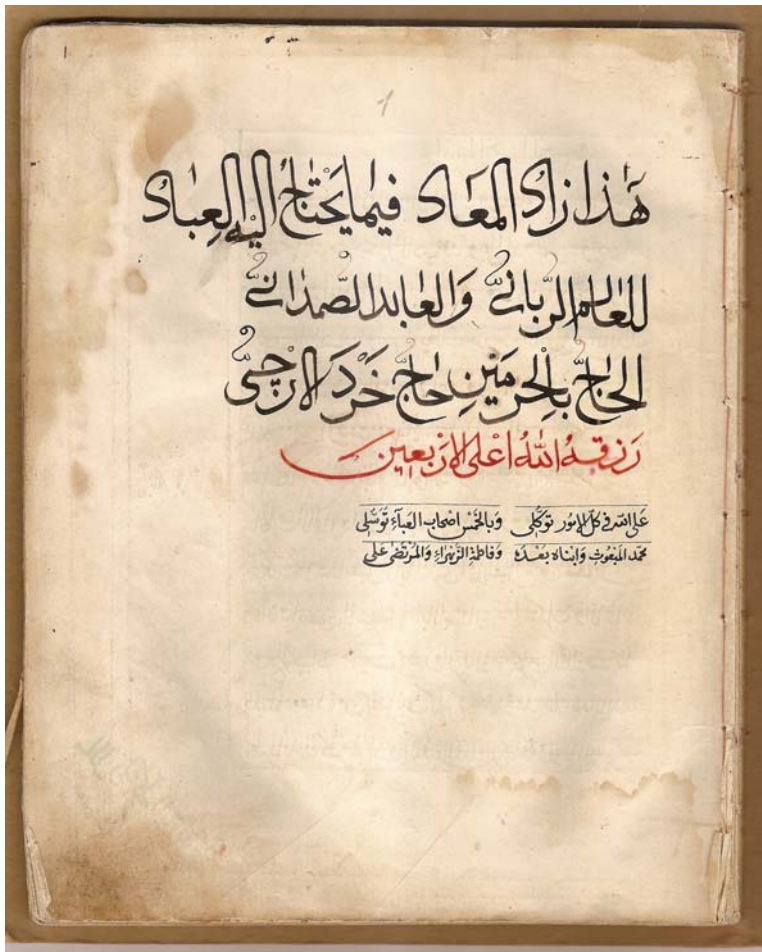 ١
هٰذا زاد المعاد فيما يحتاج اليه العباد
للعالم الربانيّ والعابد الصّمدانيّ
الحاجّ بالحرمين حاجّ خَرْدَ الارَچيّ
رزقه الله اعلى الاربعين
على الله في كلّ الامور توكّلي وبالخمس اصحاب العبآء توسّلي
محمد المبعوث وابناه بعده وفاطمة الزّهراء والمرتضى علي